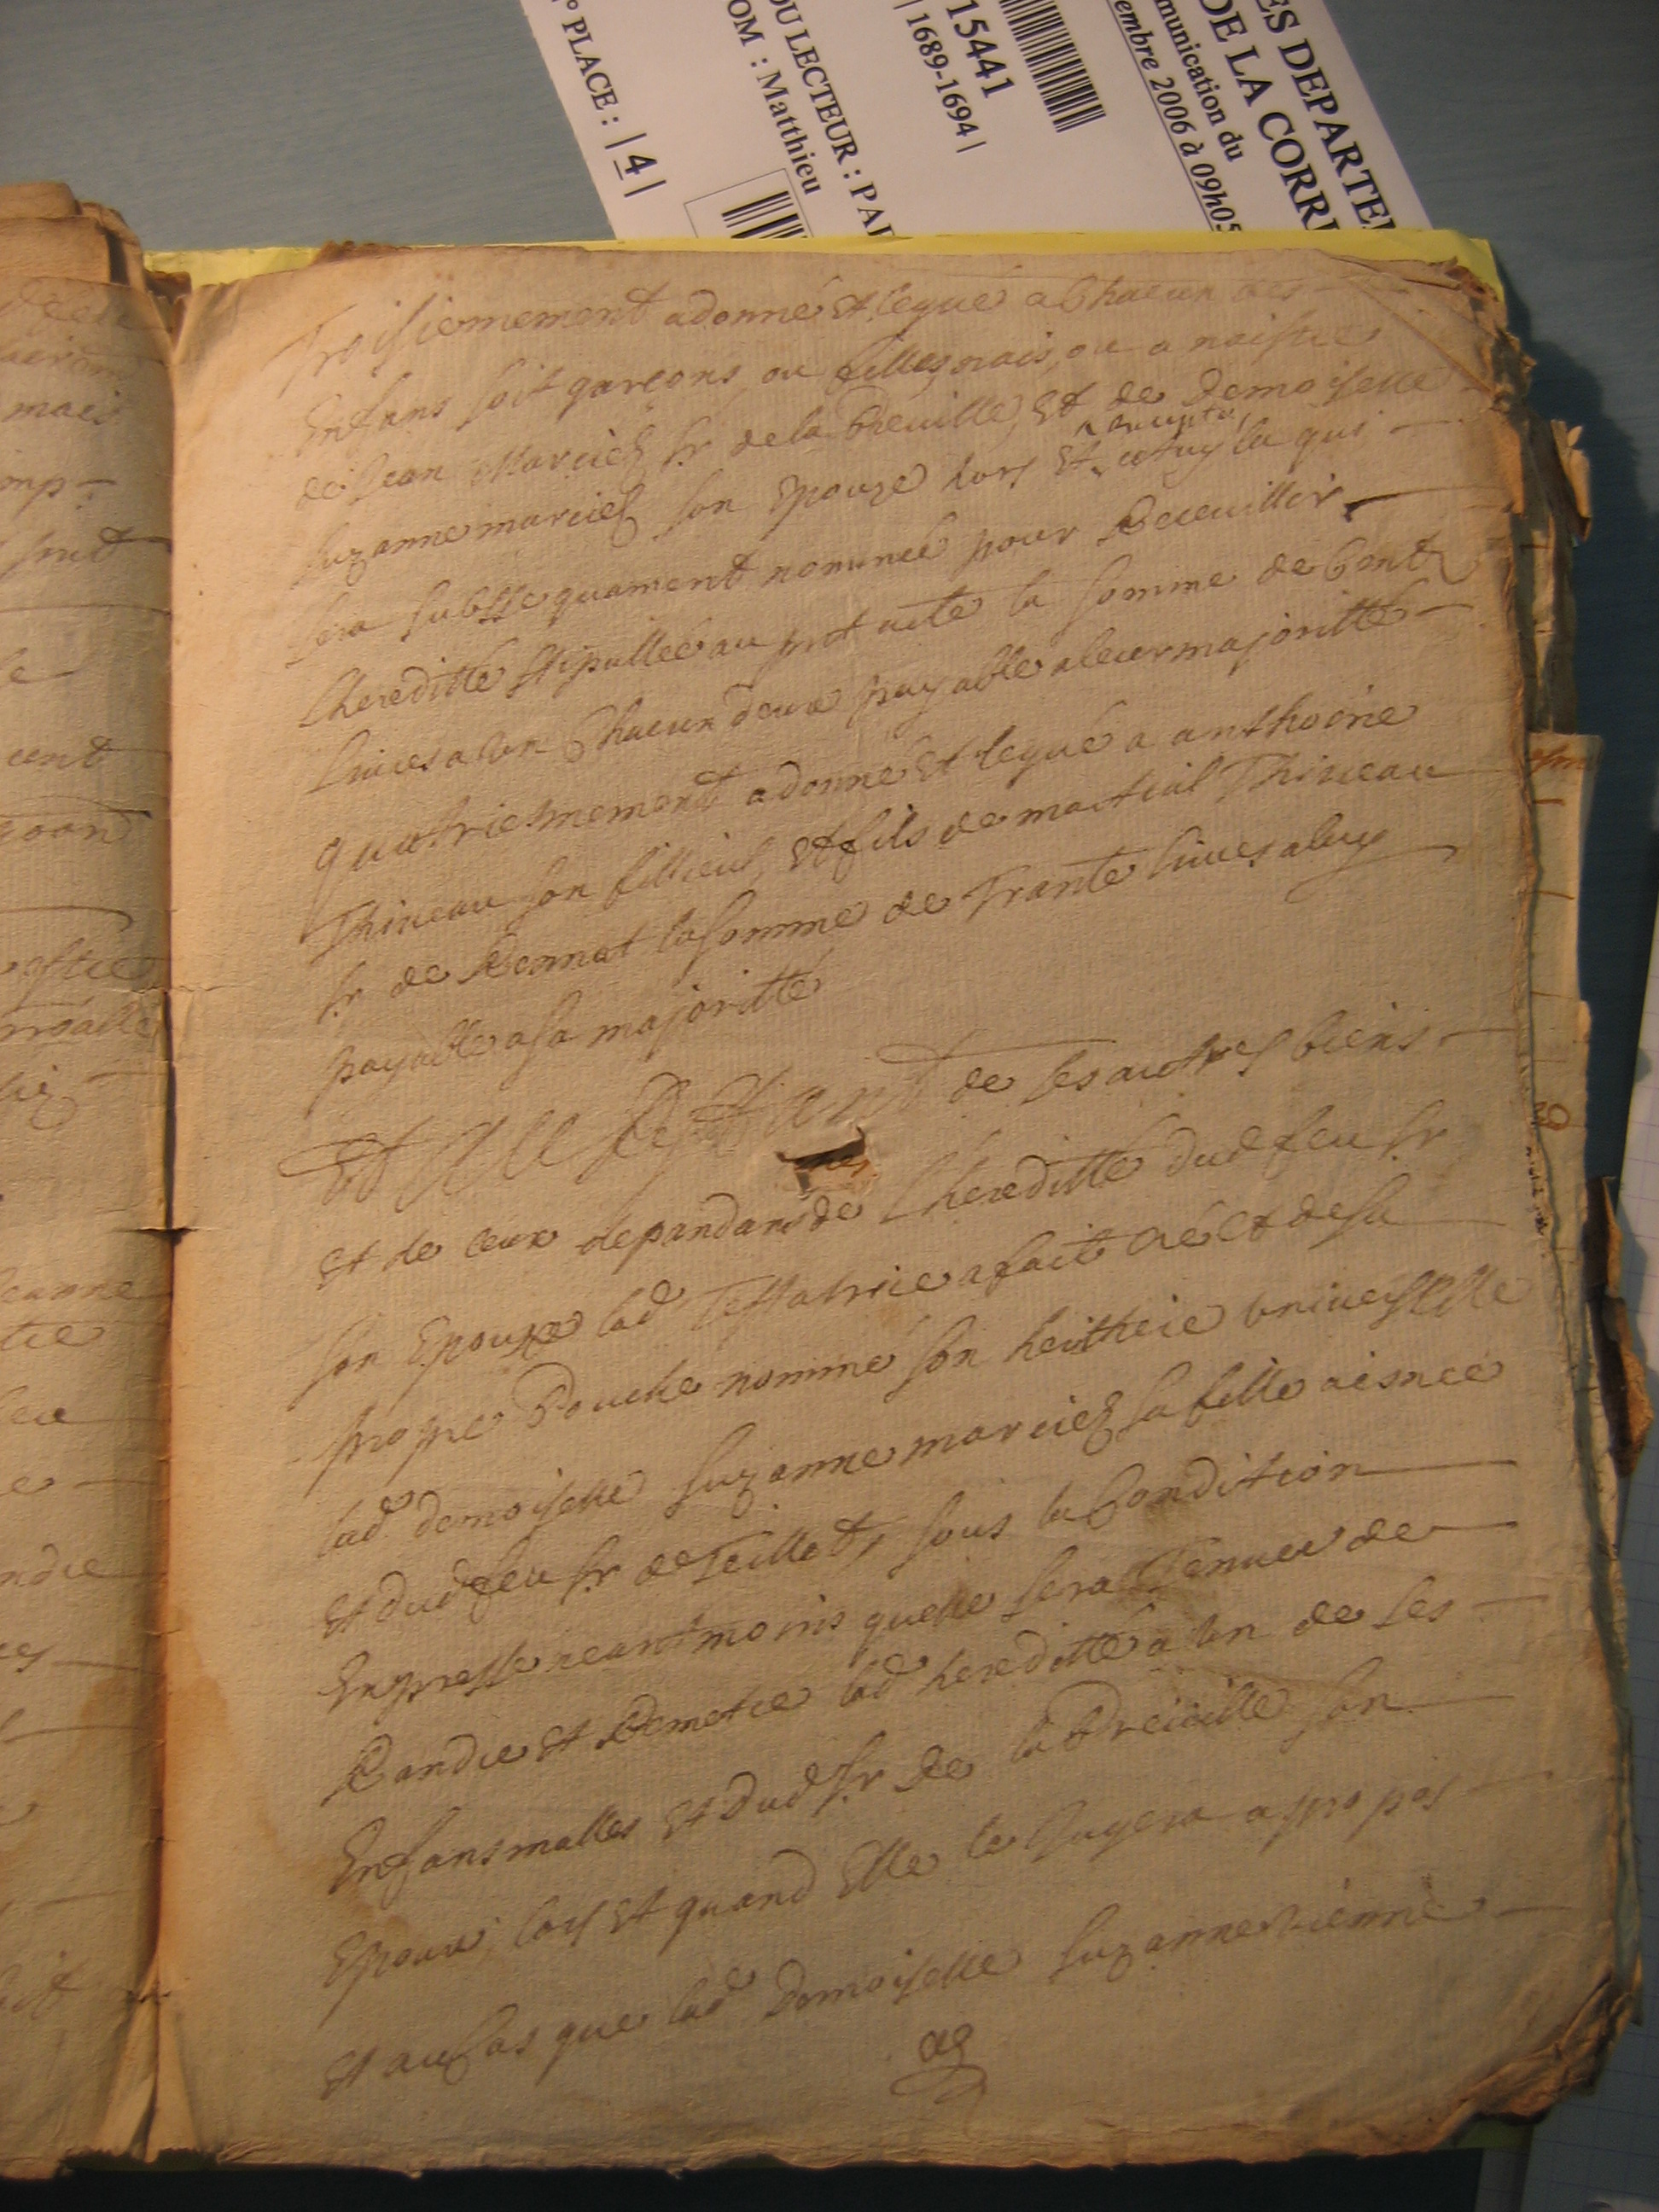 ES DEPARTE
DE LA CORR
munication du
embre 2006 à 09h05
15441
| 1689-1694 |
DU LECTEUR : PA
OM : Matthieu
° PLACE : | 4 |
Troisiemement a donné et legué a Chacun des
Enfans soit garcons ou filles, nais, ou a naistre
de Jean Marcieq sr de la Breuille, et de Demoiselle
suzanne marcieq son Epouze hors et excepté celuy la qui
sera subssequament nommée pour Receuillir
lhereditté stipullée au pnt acte la somme de Cent
livres a un Chacun deux payable a leur majoritté
quatriesmement a donné et legué a anthoine
Thiveau son fillieul, et fils de martial Thiveau
sr de Rennat la somme de Trante livres a luy
payable a sa majoritté
Et Au Restant de ses autres biens
et de ceux depandans de lhereditté dud feu sr
son Epoux lad Testatrice a fait créé et de sa
propre Bouche nommé son heritiere universselle
lad demoiselle suzanne marcieq sa fille aisnée
et dud feu sr de Teillet, sous la Condition
Expresse neantmoins quelle sera Tenue de
Randre et Remetre lad hereditté a un de ses
Enfans malles et dud sr de la Breuille son
Epoux, lors et quand Elle le Jugera a propos
et au Cas que lad Demoiselle suzanne vienne